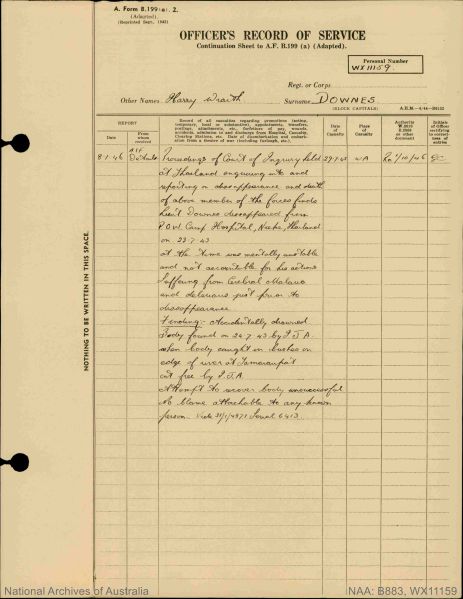 A. Form B.199 (a). 2.
(Adapted).
(Reprinted Sept. 1943)
OFFICER'S RECORD OF SERVICE
Continuation Sheet to A.F. B.199 (a) (Adapted).
Personal Number
WX11159.
Regt. or Corps
Other Names Harry Wraith Surname DOWNES
(BLOCK CAPITALS)
REPORT
Date
From whom received
Record of all casualties regarding promotions (acting, temporary, local or substantive), appointments, transfers, postings, attachments, etc., forfeiture of pay, wounds, accidents, admission to and discharge from Hospital, Casualty, Clearing Stations, etc. Date of disembarkation and embarkation from a theatre of war (including furlough, etc.).
Date of Casualty
Place of Casualty
Authority
or other document
Initials of Officer certifying to correctness of entries
8.1.46 Proceedings of Court of Inquiry held
at Thailand enquiring into and
reporting on disappearance and death
of above member of the forces finds
Lieut Downes disappeared from
P.O.W. Camp Hospital, Nieke, Thailand
on 23.7.43
at the time was mentally unstable
and not accountable for his actions
suffering from Cerebral Malaria
and delerious just prior to
disappearance
Finding:- Accidentally drowned
Body found on 29.7.43 by I.J.A.
when body caught in bushes on
edge of river at
cut free by I.J.A.
Attempt to recover body unsuccessful
No blame attachable to any known
person. Vide 21/1/4871 Serial 6413
NOTHING TO BE WRITTEN IN THIS SPACE.
National Archives of Australia
NAA: B883, WX11159